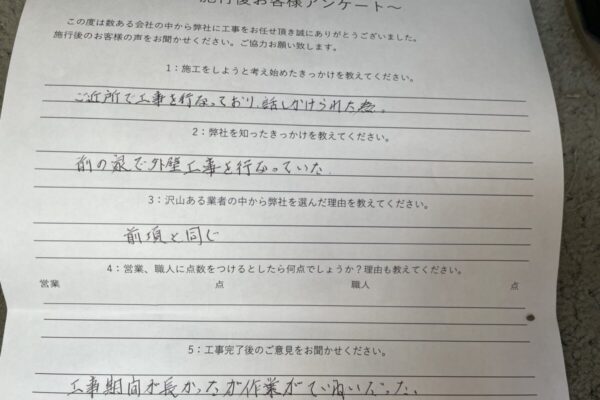 施行後お客様アンケート～
この度は数ある会社の中から弊社に工事をお任せ頂き誠にありがとうございました。
施行後のお客様の声をお聞かせください。ご協力お願い致します。
1：施工をしようと考え始めたきっかけを教えてください。
ご近所で工事を行なっており、話しかけられた為。
2：弊社を知ったきっかけを教えてください。
前の家で外壁工事を行なっていた
3：沢山ある業者の中から弊社を選んだ理由を教えてください。
前項と同じ
4：営業、職人に点数をつけるとしたら何点でしょうか？理由も教えてください。
営業 点 職人 点
5：工事完了後のご意見をお聞かせください。
工事期間が長かったが作業がてい内いだった、